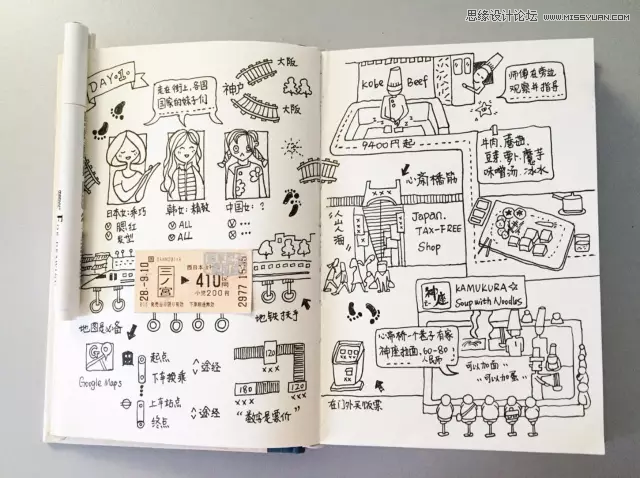 思缘设计论坛
WWW.MISSYUAN.COM
DAY①
走在街上,各国
国家的妹子们
神户
大阪
大阪
日本女:乖巧
韩女:精致
中国女:?
腮红
发型
ALL
ALL
...
...
999
28.-9.10
三ノ宮
西日本
▶410円
小児200円
2977
下車前途無効
地铁扶手
地图是必备
Google Maps
起点
下车换乘
上车站点
终点
途经
途经
120
180
120
×××
×××
×××
"数字是票价"
Kobe Beef
师傅在旁边
观察并指导
9400円起
牛肉、蘑菇、
豆菜、萝卜、魔芋
味噌汤、冰水
心斋橋筋
Japan.
TAX-FREE
Shop
人山人海
神座
KAMUKURA☆
Soup with Noodles
心斋桥一个巷子有家
神座拉面,60-80
人民币
"可以加面"
"可以加蛋"
在门外买饭票